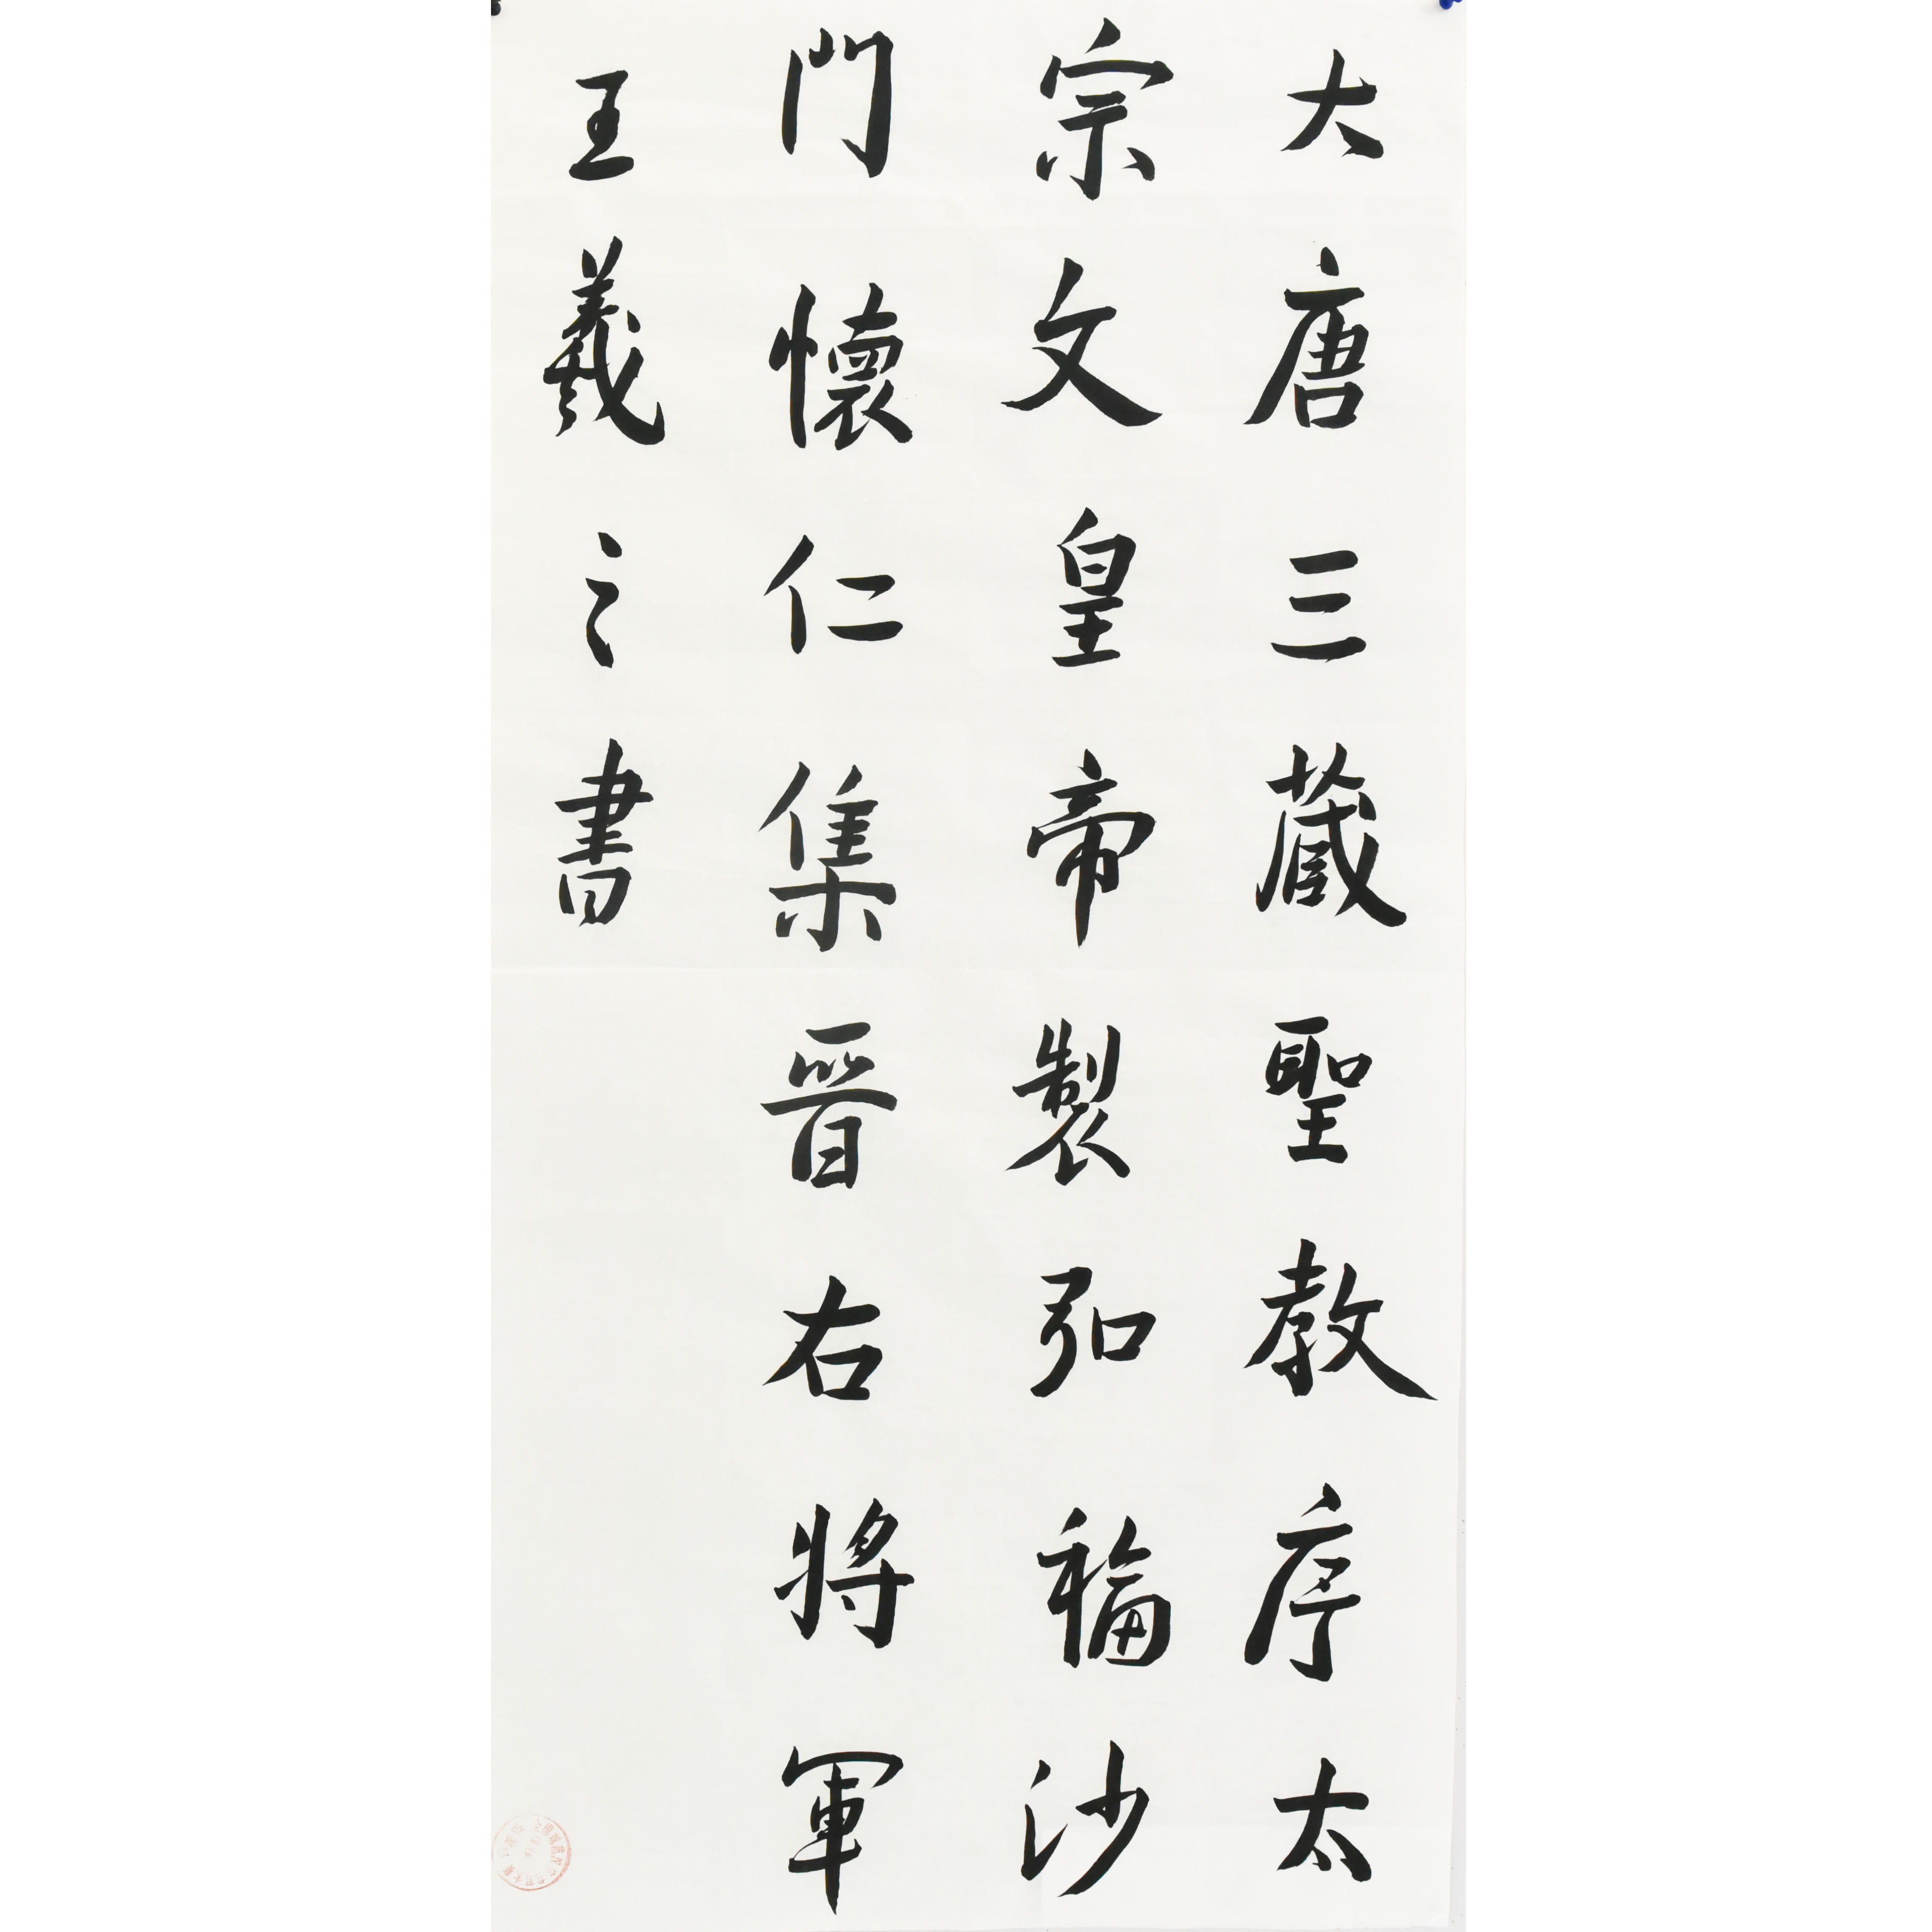 大唐三藏聖教序太
宗文皇帝製弘福沙
門懷仁集晉右將軍
王羲之書